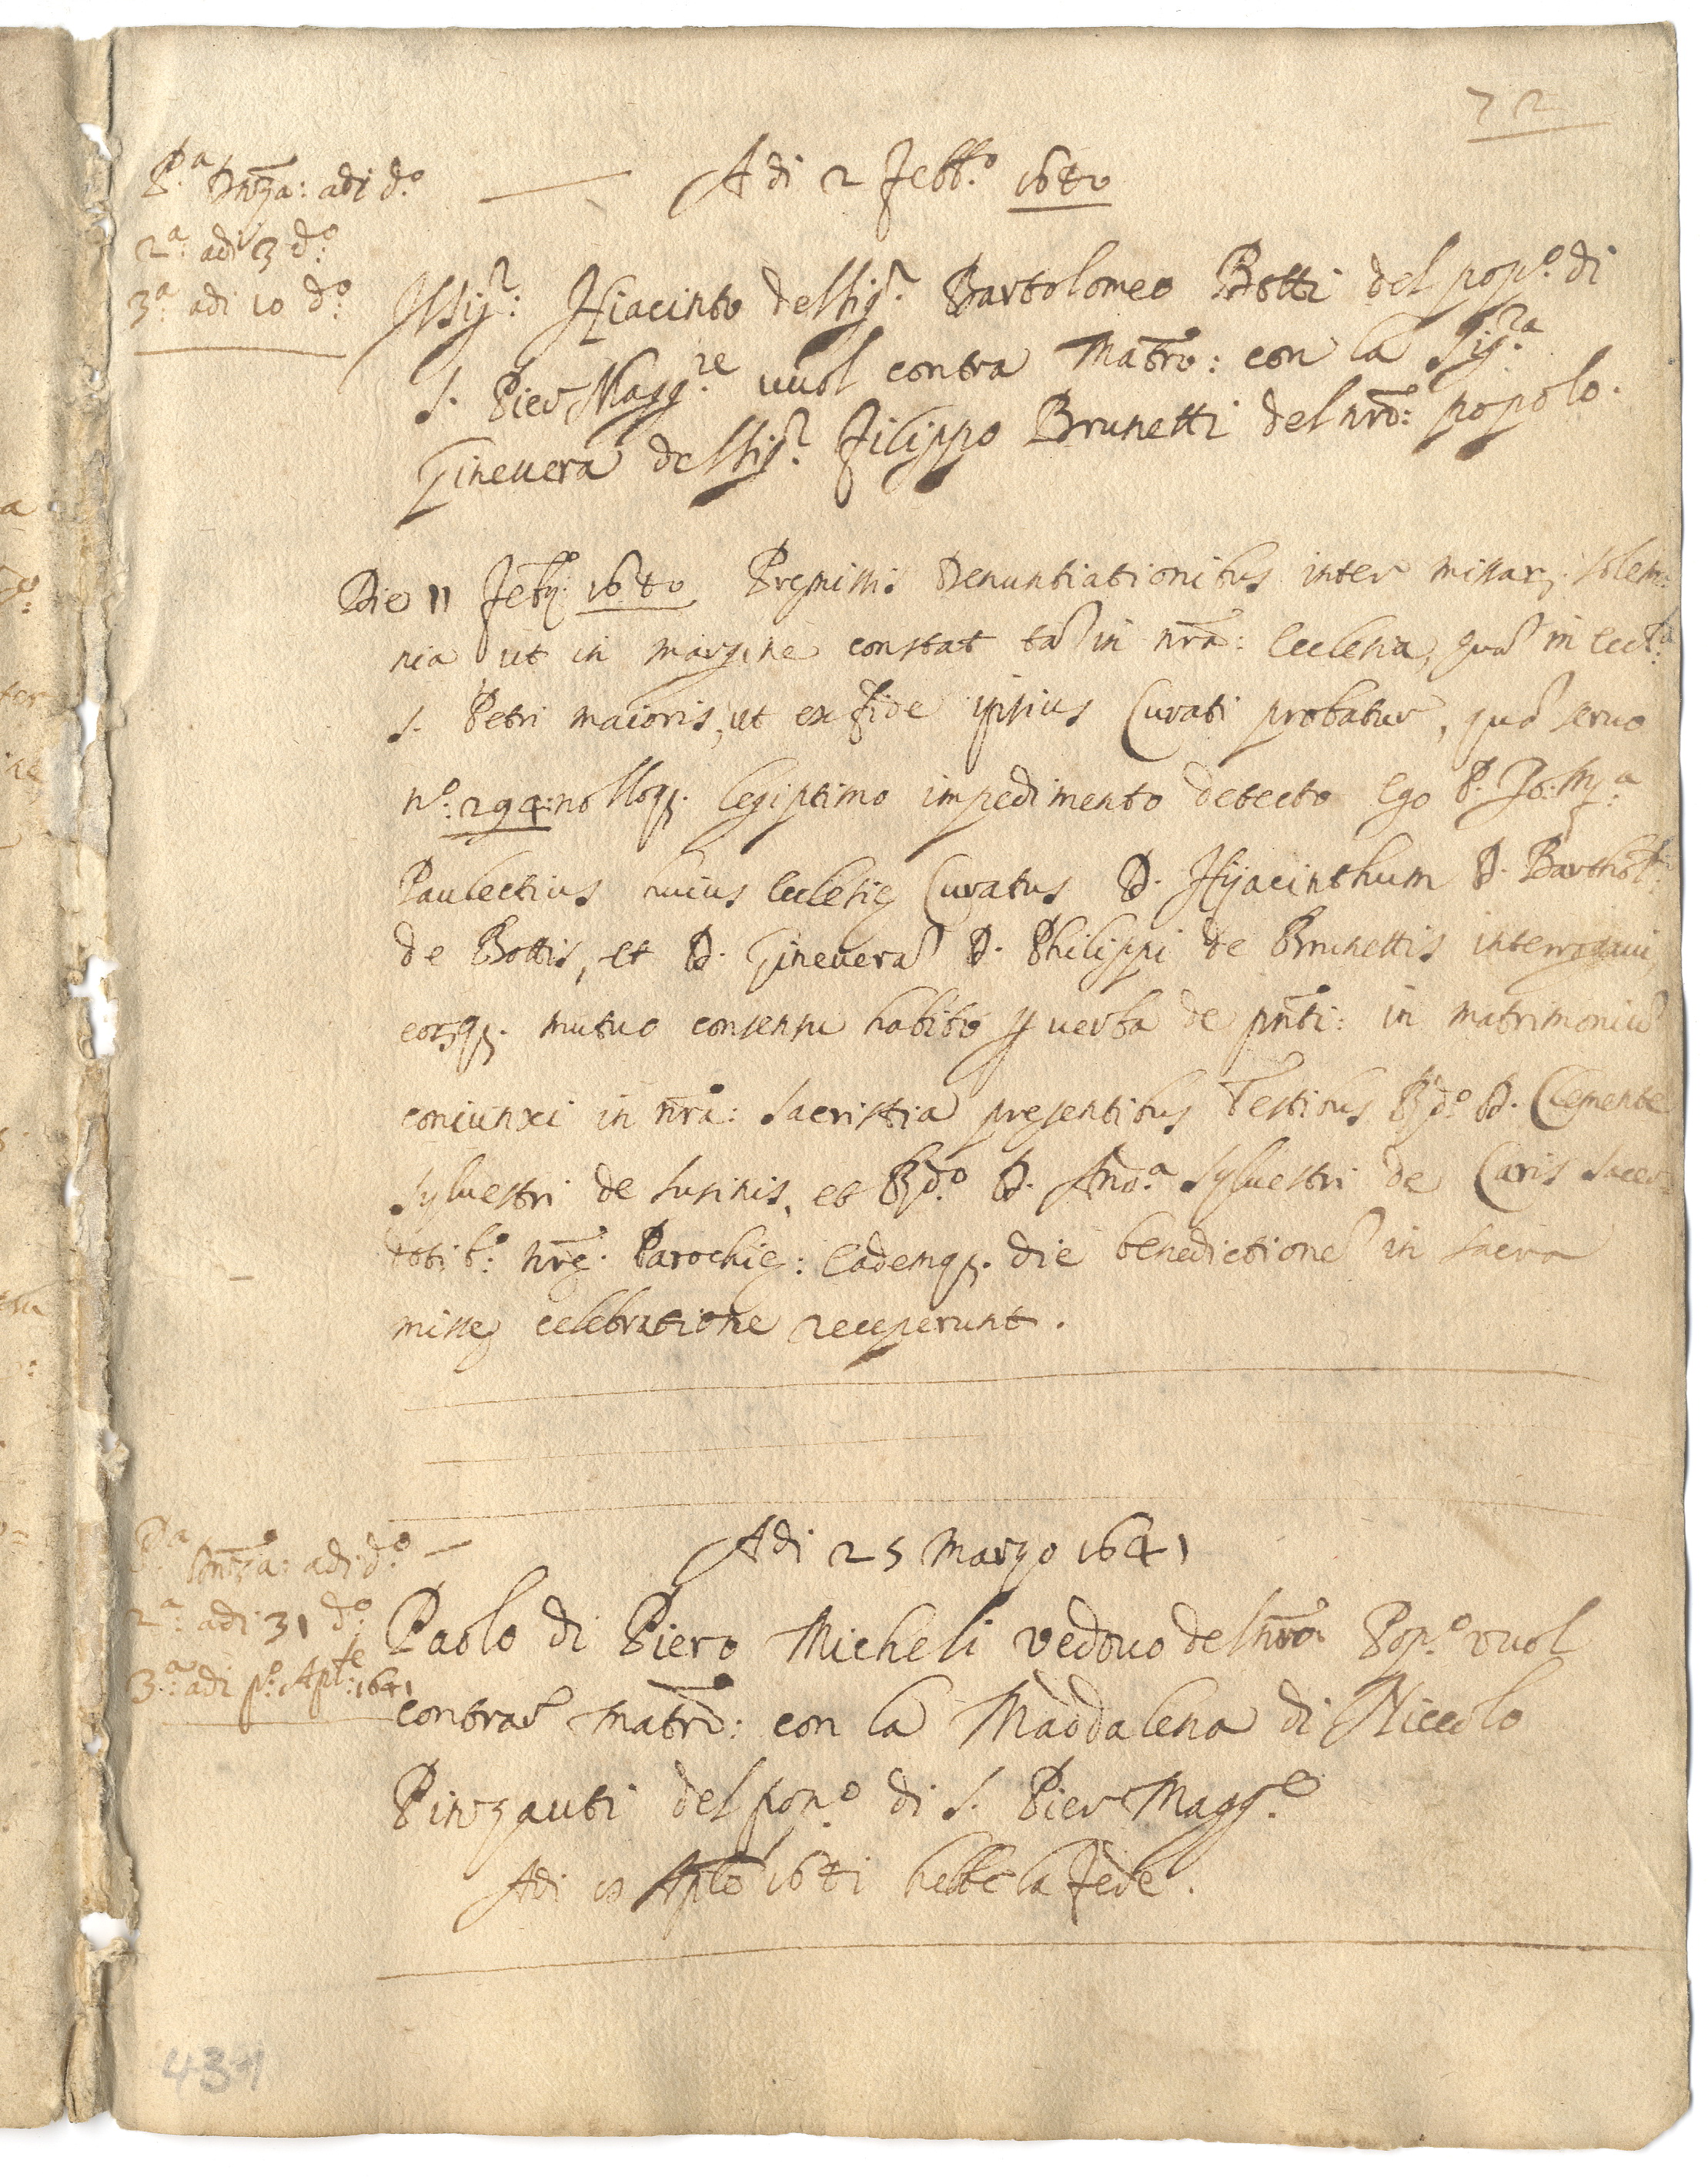 72
P.ª Dnza: adi d.º
2.ª: adi 3 d.º
3.ª adi 10 d.º
Adi 2 Febb.º 1640
Il Sig.r: Hiacinto del Sig.r Bartolomeo Botti del pop.º di
S. Pier Magg.re vuol contra Matrо: con la Sig.ra
Gineuera del Sig.r Filippo Brunetti del nrо: popolo.
Die 11 Feb.: 1640 Premissis Denuntiationibus inter missar. solem-
nia ut in margine constat tã in nrã: Ecclesia, quã in Eccl.ª
S. Petri maioris, ut ex fide ipsius Curati probatur, quã seruo
nº: 294: nolloq. legiptimo impedimento detecto Ego P. Jo:
Paulectius huius Ecclesię Curatus D. Hyacinthum D. Barthol:
de Bottis, et D. Gineuerã D. Philippi de Brunettis interrogaui,
eorq. mutuo consensu habito p uerba de pnti: in matrimoniũ
coniunxi in nrã: Sacristia presentibus Testibus Rdº D. Clemente
Syluestri de Susinis, et Rdº D. And.ª Syluestri de Caris Sacer-
dotib.º: nrę: Parochię: Eademq. die benedictionẽ in sacra
missę celebratione receperunt.
P.ª Dnza: adi d.º
2.ª: adi 31 d.º
3.ª: adi p.º Aple: 1641
Adi 25 Marzo 1641
Paolo di Piero Micheli vedouo del nrо Pop.º vuol
contrar Matrо: con la Maddalena di Niccolo
Pinzauti del pop.º di S. Pier Magg.e
Adi 10 Aple 1641 hebbe la fede.
431